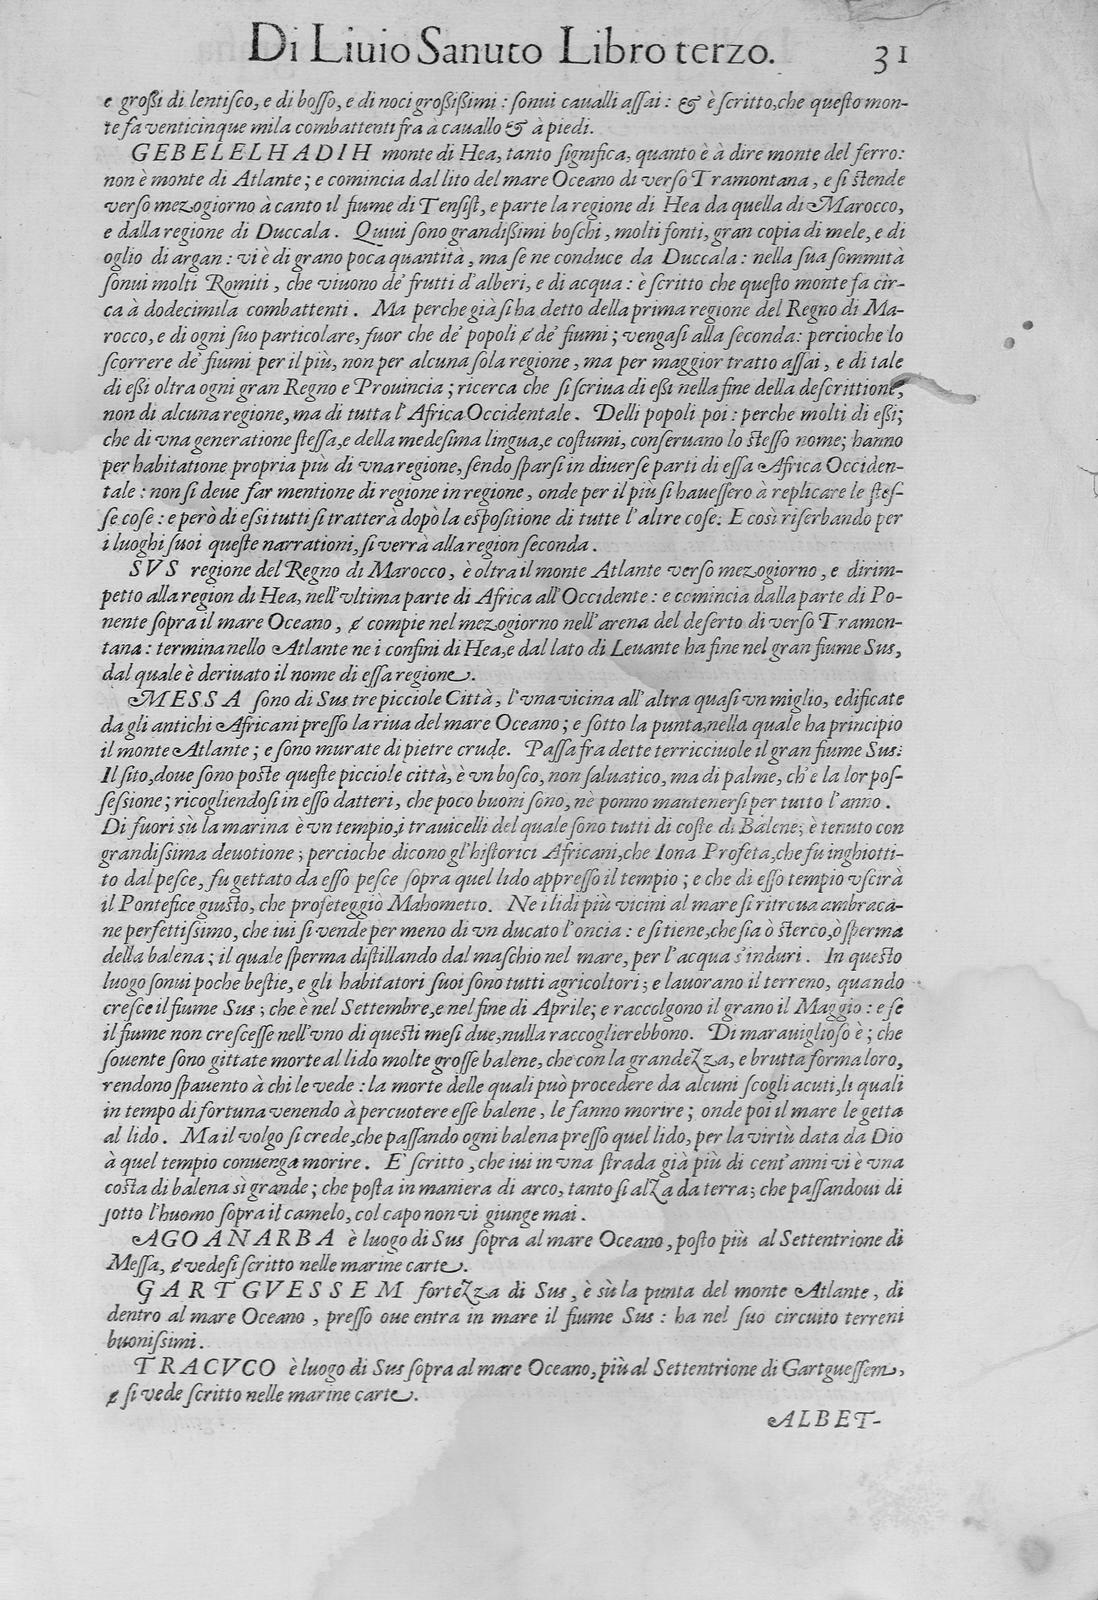 Di Liuio Sanuto Libro terzo. 31
e großi di lentisco, e di bosso, e di noci großißimi: sonui caualli assai: & è scritto, che questo mon-
te fa venticinque mila combattenti fra à cauallo & à piedi.
GEBELELHADIH monte di Hea, tanto significa, quanto è à dire monte del ferro:
non è monte di Atlante; e comincia dal lito del mare Oceano di verso Tramontana, e si stende
verso mezogiorno à canto il fiume di Tensist, e parte la regione di Hea da quella di Marocco,
e dalla regione di Duccala. Quiui sono grandißimi boschi, molti fonti, gran copia di mele, e di
oglio di argan: vi è di grano poca quantità, ma se ne conduce da Duccala: nella sua sommità
sonui molti Romiti, che viuono de' frutti d'alberi, e di acqua: è scritto che questo monte fa cir-
ca à dodecimila combattenti. Ma perche già si ha detto della prima regione del Regno di Ma-
rocco, e di ogni suo particolare, fuor che de' popoli & de' fiumi; vengasi alla seconda: percioche lo
scorrere de' fiumi per il più, non per alcuna sola regione, ma per maggior tratto assai, e di tale
di eßi oltra ogni gran Regno e Prouincia; ricerca che si scriua di eßi nella fine della descrittione,
non di alcuna regione, ma di tutta l'Africa Occidentale. Delli popoli poi: perche molti di eßi;
che di vna generatione stessa, e della medesima lingua, e costumi, conseruano lo stesso nome; hanno
per habitatione propria più di vna regione, sendo sparsi in diuerse parti di essa Africa Occiden-
tale: non si deue far mentione di regione in regione, onde per il più si hauessero à replicare le stes-
se cose: e però di essi tutti si tratterà dopò la espositione di tutte l'altre cose. E così riserbando per
i luoghi suoi queste narrationi, si verrà alla region seconda.
SVS regione del Regno di Marocco, è oltra il monte Atlante verso mezogiorno, e dirim-
petto alla region di Hea, nell'vltima parte di Africa all'Occidente: e comincia dalla parte di Po-
nente sopra il mare Oceano, & compie nel mezogiorno nell'arena del deserto di verso Tramon-
tana: termina nello Atlante ne i confini di Hea, e dal lato di Leuante ha fine nel gran fiume Sus,
dal quale è deriuato il nome di essa regione.
MESSA sono di Sus tre picciole Città, l'vna vicina all'altra quasi vn miglio, edificate
da gli antichi Africani presso la riua del mare Oceano; e sotto la punta, nella quale ha principio
il monte Atlante; e sono murate di pietre crude. Passa fra dette terricciuole il gran fiume Sus.
Il sito, doue sono poste queste picciole città, è vn bosco, non saluatico, ma di palme, ch'è la lor pos-
sessione; ricogliendosi in esso datteri, che poco buoni sono, nè ponno mantenersi per tutto l'anno.
Di fuori sù la marina è vn tempio, i trauicelli del quale sono tutti di coste di Balene; è tenuto con
grandissima deuotione; percioche dicono gl'historici Africani, che Iona Profeta, che fu inghiotti-
to dal pesce, fu gettato da esso pesce sopra quel lido appresso il tempio; e che di esso tempio vscirà
il Pontefice giusto, che profeteggiò Mahometto. Ne i lidi più vicini al mare si ritroua ambracà-
ne perfettissimo, che iui si vende per meno di vn ducato l'oncia: e si tiene, che sia ò sterco, ò sperma
della balena; il quale sperma distillando dal maschio nel mare, per l'acqua s'induri. In questo
luogo sonui poche bestie, e gli habitatori suoi sono tutti agricoltori; e lauorano il terreno, quando
cresce il fiume Sus; che è nel Settembre, e nel fine di Aprile; e raccolgono il grano il Maggio: e se
il fiume non crescesse nell'vno di questi mesi due, nulla raccoglierebbono. Di marauiglioso è; che
souente sono gittate morte al lido molte grosse balene, che con la grandezza, e brutta forma loro,
rendono spauento à chi le vede: la morte delle quali può procedere da alcuni scogli acuti, li quali
in tempo di fortuna venendo à percuotere esse balene, le fanno morire; onde poi il mare le getta
al lido. Ma il volgo si crede, che passando ogni balena presso quel lido, per la virtù data da Dio
à quel tempio conuenga morire. E' scritto, che iui in vna strada già più di cent'anni vi è vna
costa di balena sì grande; che posta in maniera di arco, tanto si alza da terra; che passandoui di
sotto l'huomo sopra il camelo, col capo non vi giunge mai.
AGOANARBA è luogo di Sus sopra al mare Oceano, posto più al Settentrione di
Messa, & vedesi scritto nelle marine carte.
GARTGVESSEM fortezza di Sus, è sù la punta del monte Atlante, di
dentro al mare Oceano, presso oue entra in mare il fiume Sus: ha nel suo circuito terreni
buonissimi.
TRACVCO è luogo di Sus sopra al mare Oceano, più al Settentrione di Gartguessem,
& si vede scritto nelle marine carte.
ALBET-